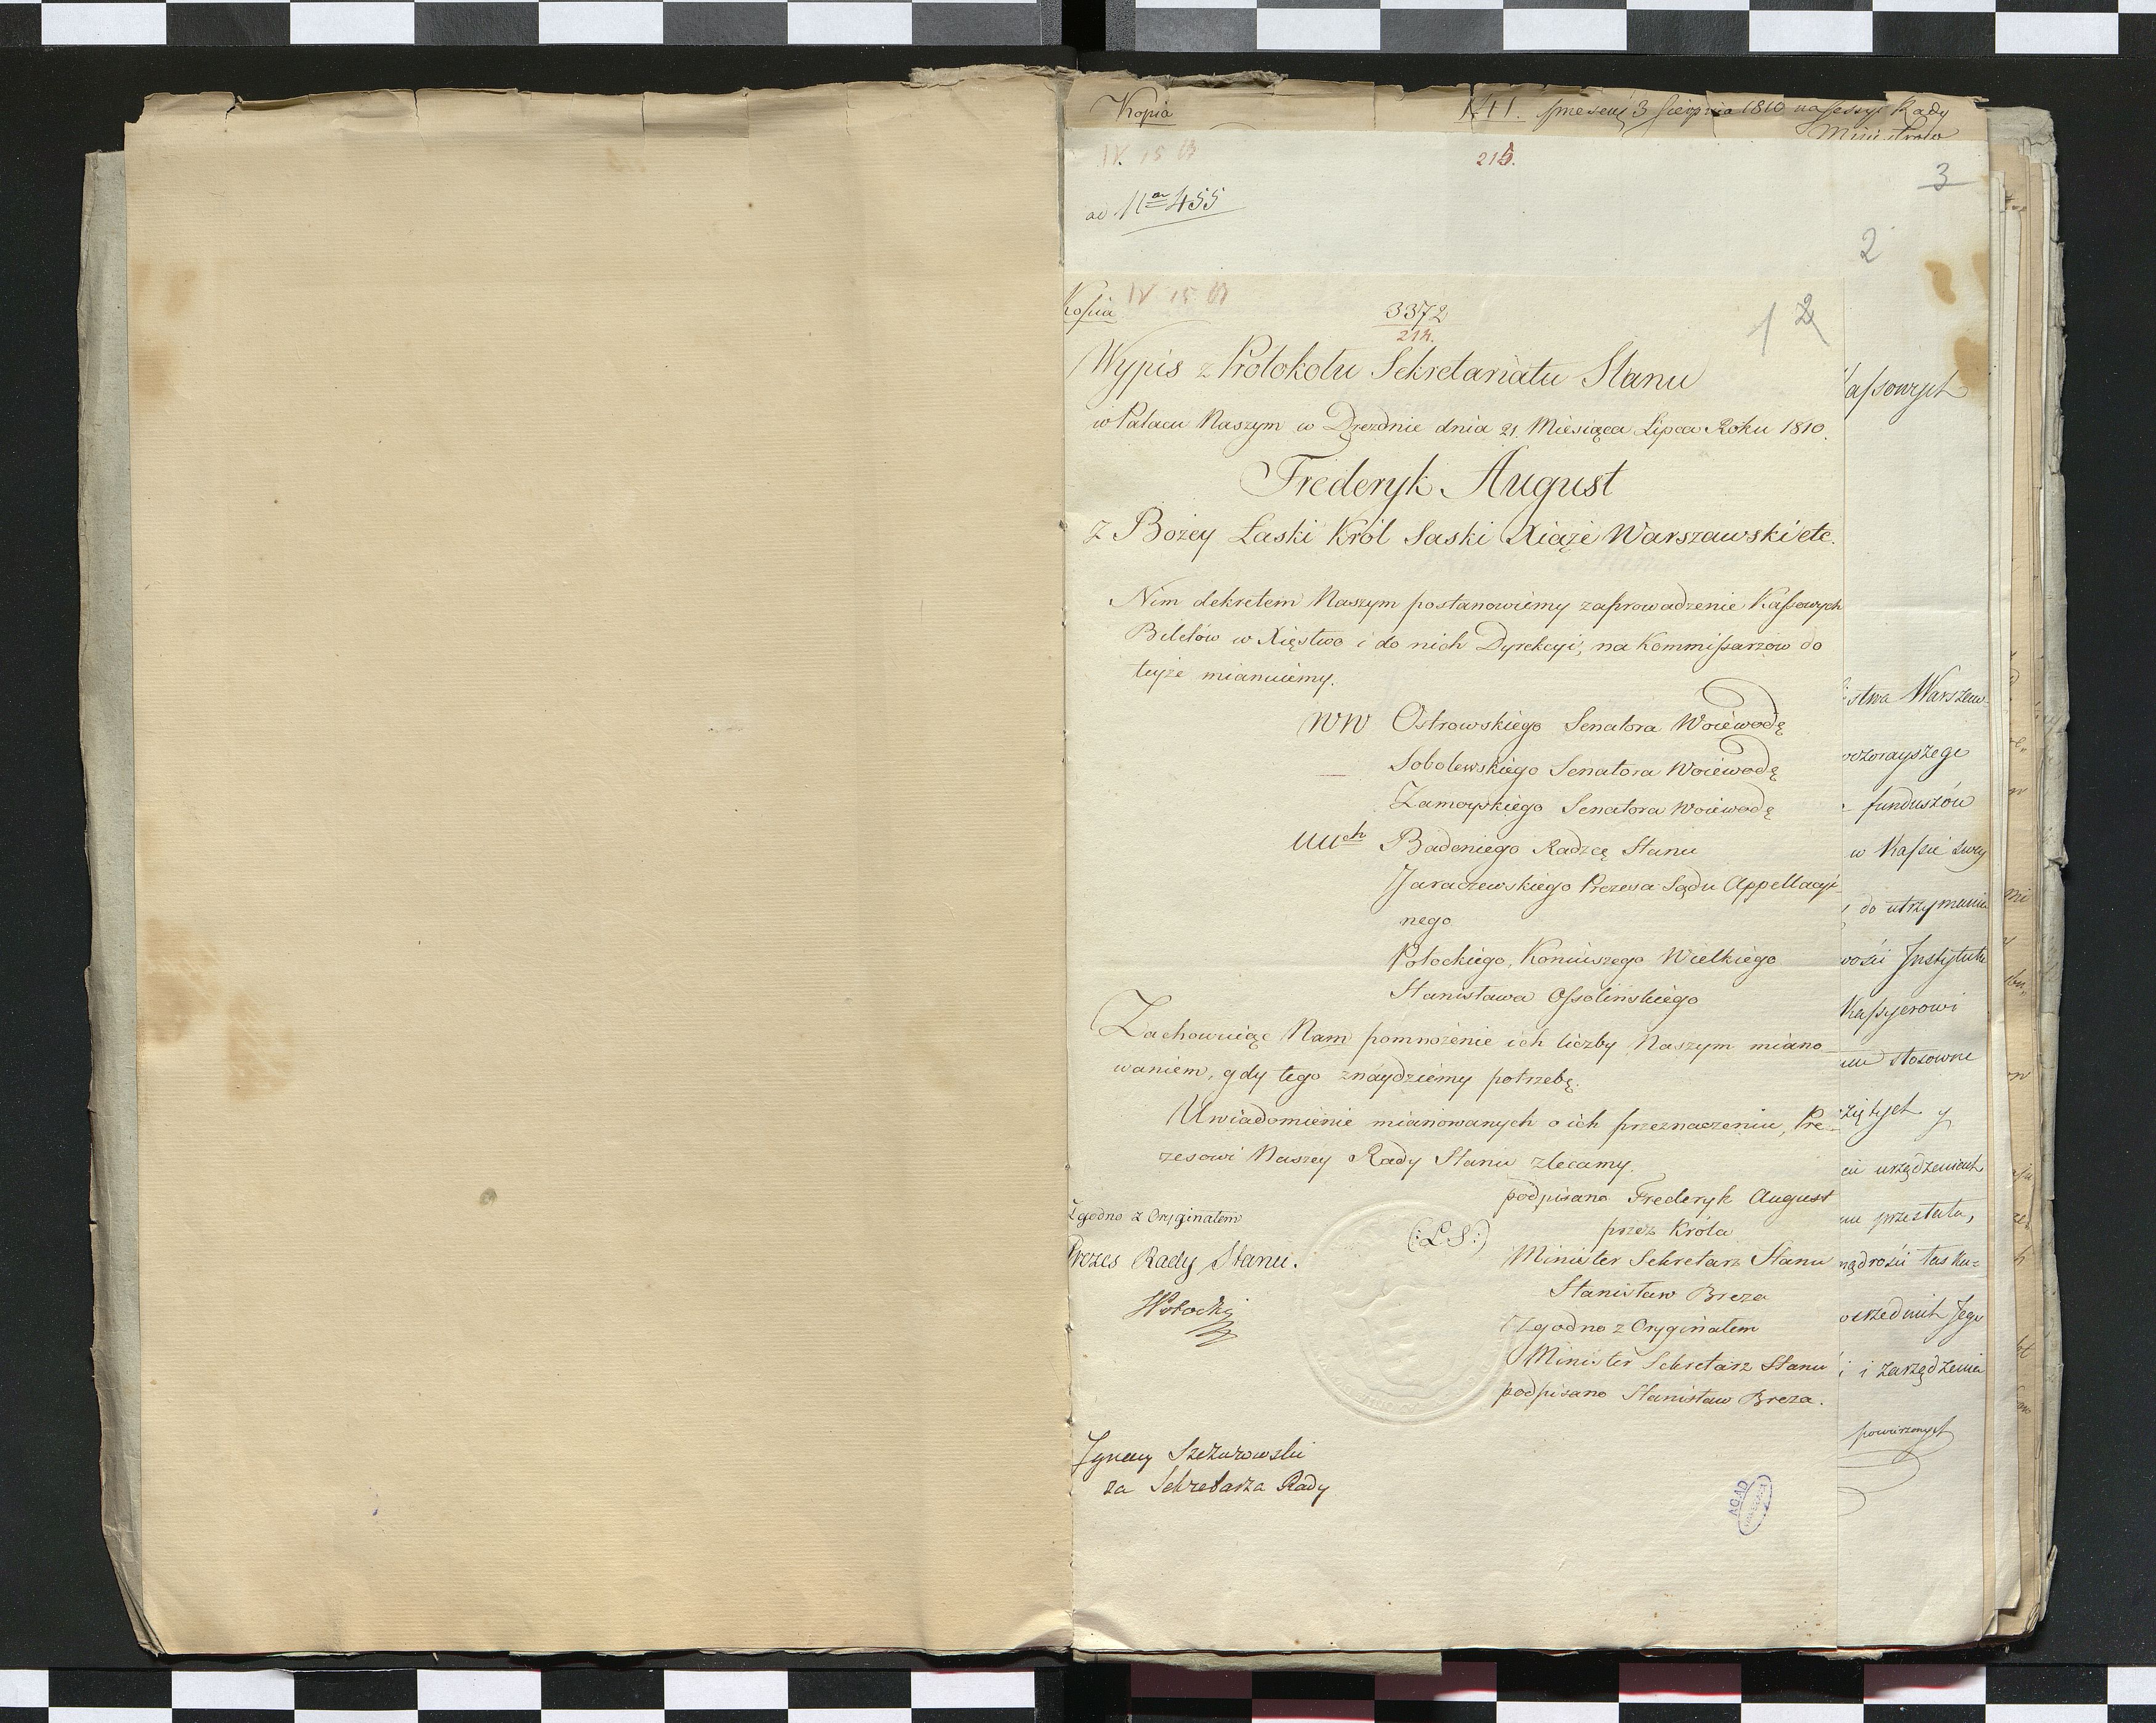 Kopia
1411. 3 Sierpnia 1810 na sessyi Rady
Ministrów
IV 15 b
215.
3
ad Nrm 455
2
Kopia IV 15 b
3372
214.
1 2
Wypis z Protokołu Sekretariatu Stanu
w Pałacu Naszym w Dreznie dnia 21. Miesiąca Lipca Roku 1810.
Frederyk August
z Bożey Łaski Król Saski Xiąże Warszawski etc.
Nim dekretem Naszym postanowiemy zaprowadzenie Kassowych
Biletów w Xięstwo i do nich Dyrekcyi, na Kommissarzów do
teyże mianuiemy.
WW Ostrowskiego Senatora Woiewodę
— Sobolewskiego Senatora Woiewodę
Zamoyskiego Senatora Woiewodę
UUch Badeniego Radzcę Stanu
Jaraczewskiego Prezesa Sądu Appellacyi-
nego
Potockiego, Koniuszego Wielkiego
Stanisława Ossolinskiego
Zachowuiąc Nam pomnożenie ich liczby Naszym miano-
waniem, gdy tego znaydziemy potrzebę.
Uwiadomienie mianowanych o ich przeznaczeniu, Pre-
zesowi Naszey Rady Stanu zlecamy.
podpisano Frederyk August
przez Króla
(:LS:)
Minister Sekretarz Stanu
Stanisław Breza
Zgodno z Oryginałem
Minister Sekretarz Stanu
podpisano Stanisław Breza.
Zgodno z Oryginałem
Prezes Rady Stanu.
Potocki
Ignacy Szczurowski
za Sekretarza Rady
AGAD
assowych
istwa Warszaw-
funduszów
w Kassie swey
do utrzymania
wości Instytutu
Kassyerowi
stosowne
ziętych y
urządzeniach
przestała,
mądrości łasku=
Jego
i i zarządzenia
powierzonych